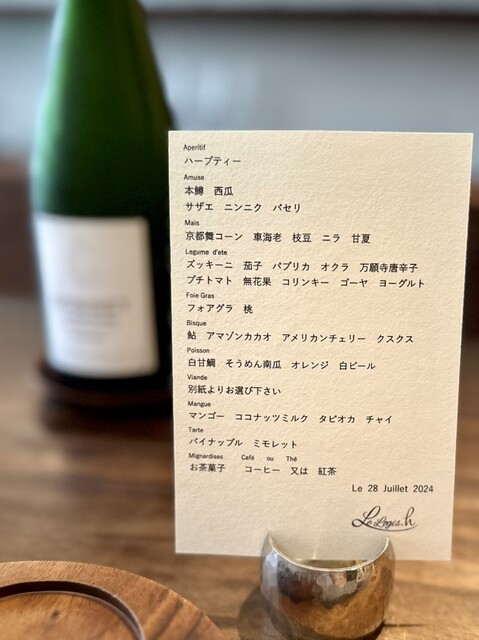 Aperitif
ハーブティー
Amuse
本鱒　西瓜
サザエ　ニンニク　パセリ
Mais
京都舞コーン　車海老　枝豆　ニラ　甘夏
Legume d'ete
ズッキーニ　茄子　パプリカ　オクラ　万願寺唐辛子
プチトマト　無花果　コリンキー　ゴーヤ　ヨーグルト
Foie Gras
フォアグラ　桃
Bisque
鮎　アマゾンカカオ　アメリカンチェリー　クスクス
Poisson
白甘鯛　そうめん南瓜　オレンジ　白ビール
Viande
別紙よりお選び下さい
Mangue
マンゴー　ココナッツミルク　タピオカ　チャイ
Tarte
パイナップル　ミモレット
Mignardises　Café　ou　Thé
お茶菓子　コーヒー　又は　紅茶
Le 28 Juillet 2024
Le Logis.h